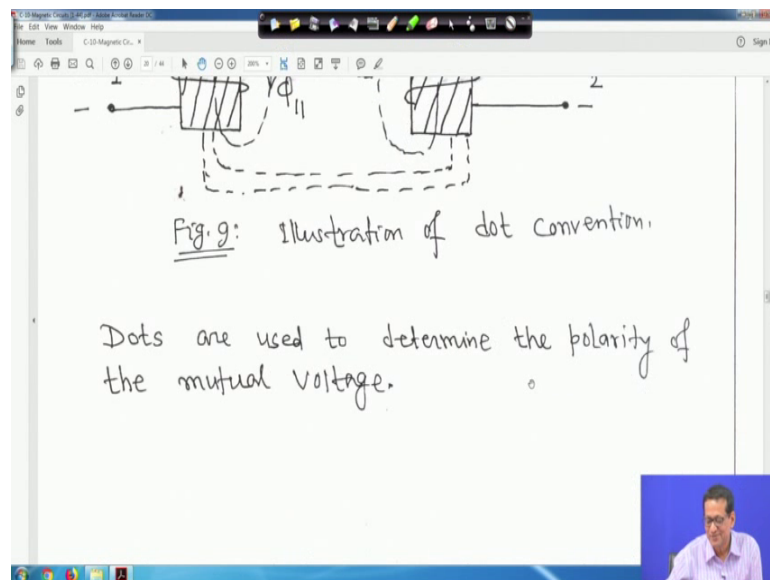 C-10-Magnetic Circuits (1-44).pdf - Adobe Acrobat Reader DC
File Edit View Window Help
Home Tools C-10-Magnetic Cir... × Sign
20 / 44 200%
1 2
− ϕ11 −
Fig. 9: Illustration of dot convention.
Dots are used to determine the polarity of
the mutual voltage.